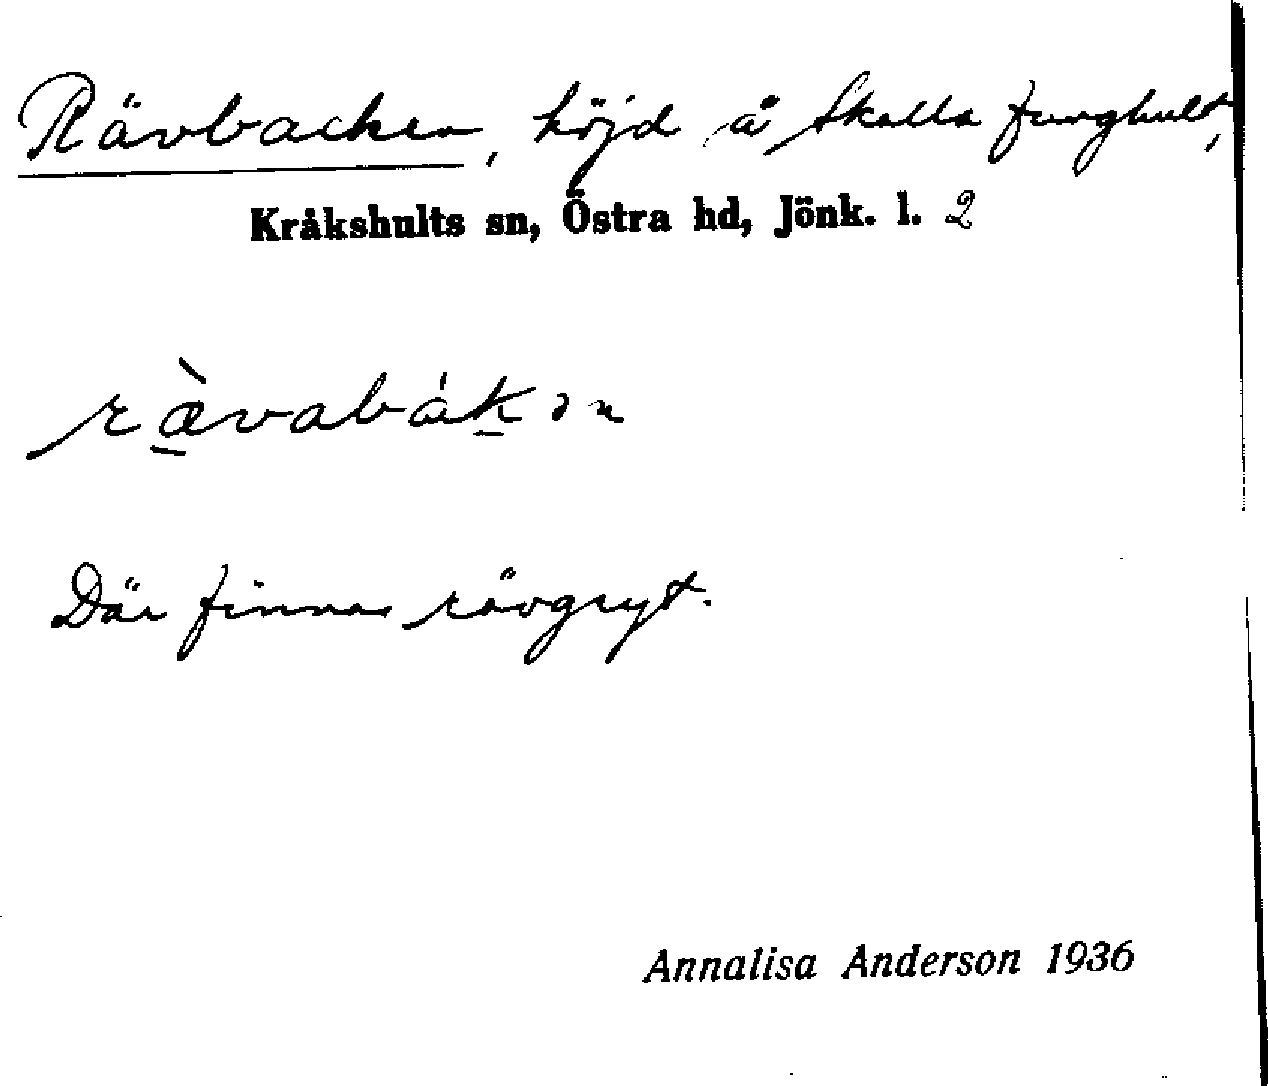 Rävbacken, höjd å Skalla Funghult,
Kråkshults sn, Östra hd, Jönk. l. 2
ræ̀vabákən
Där finnas rävgryt.
Annalisa Anderson 1936